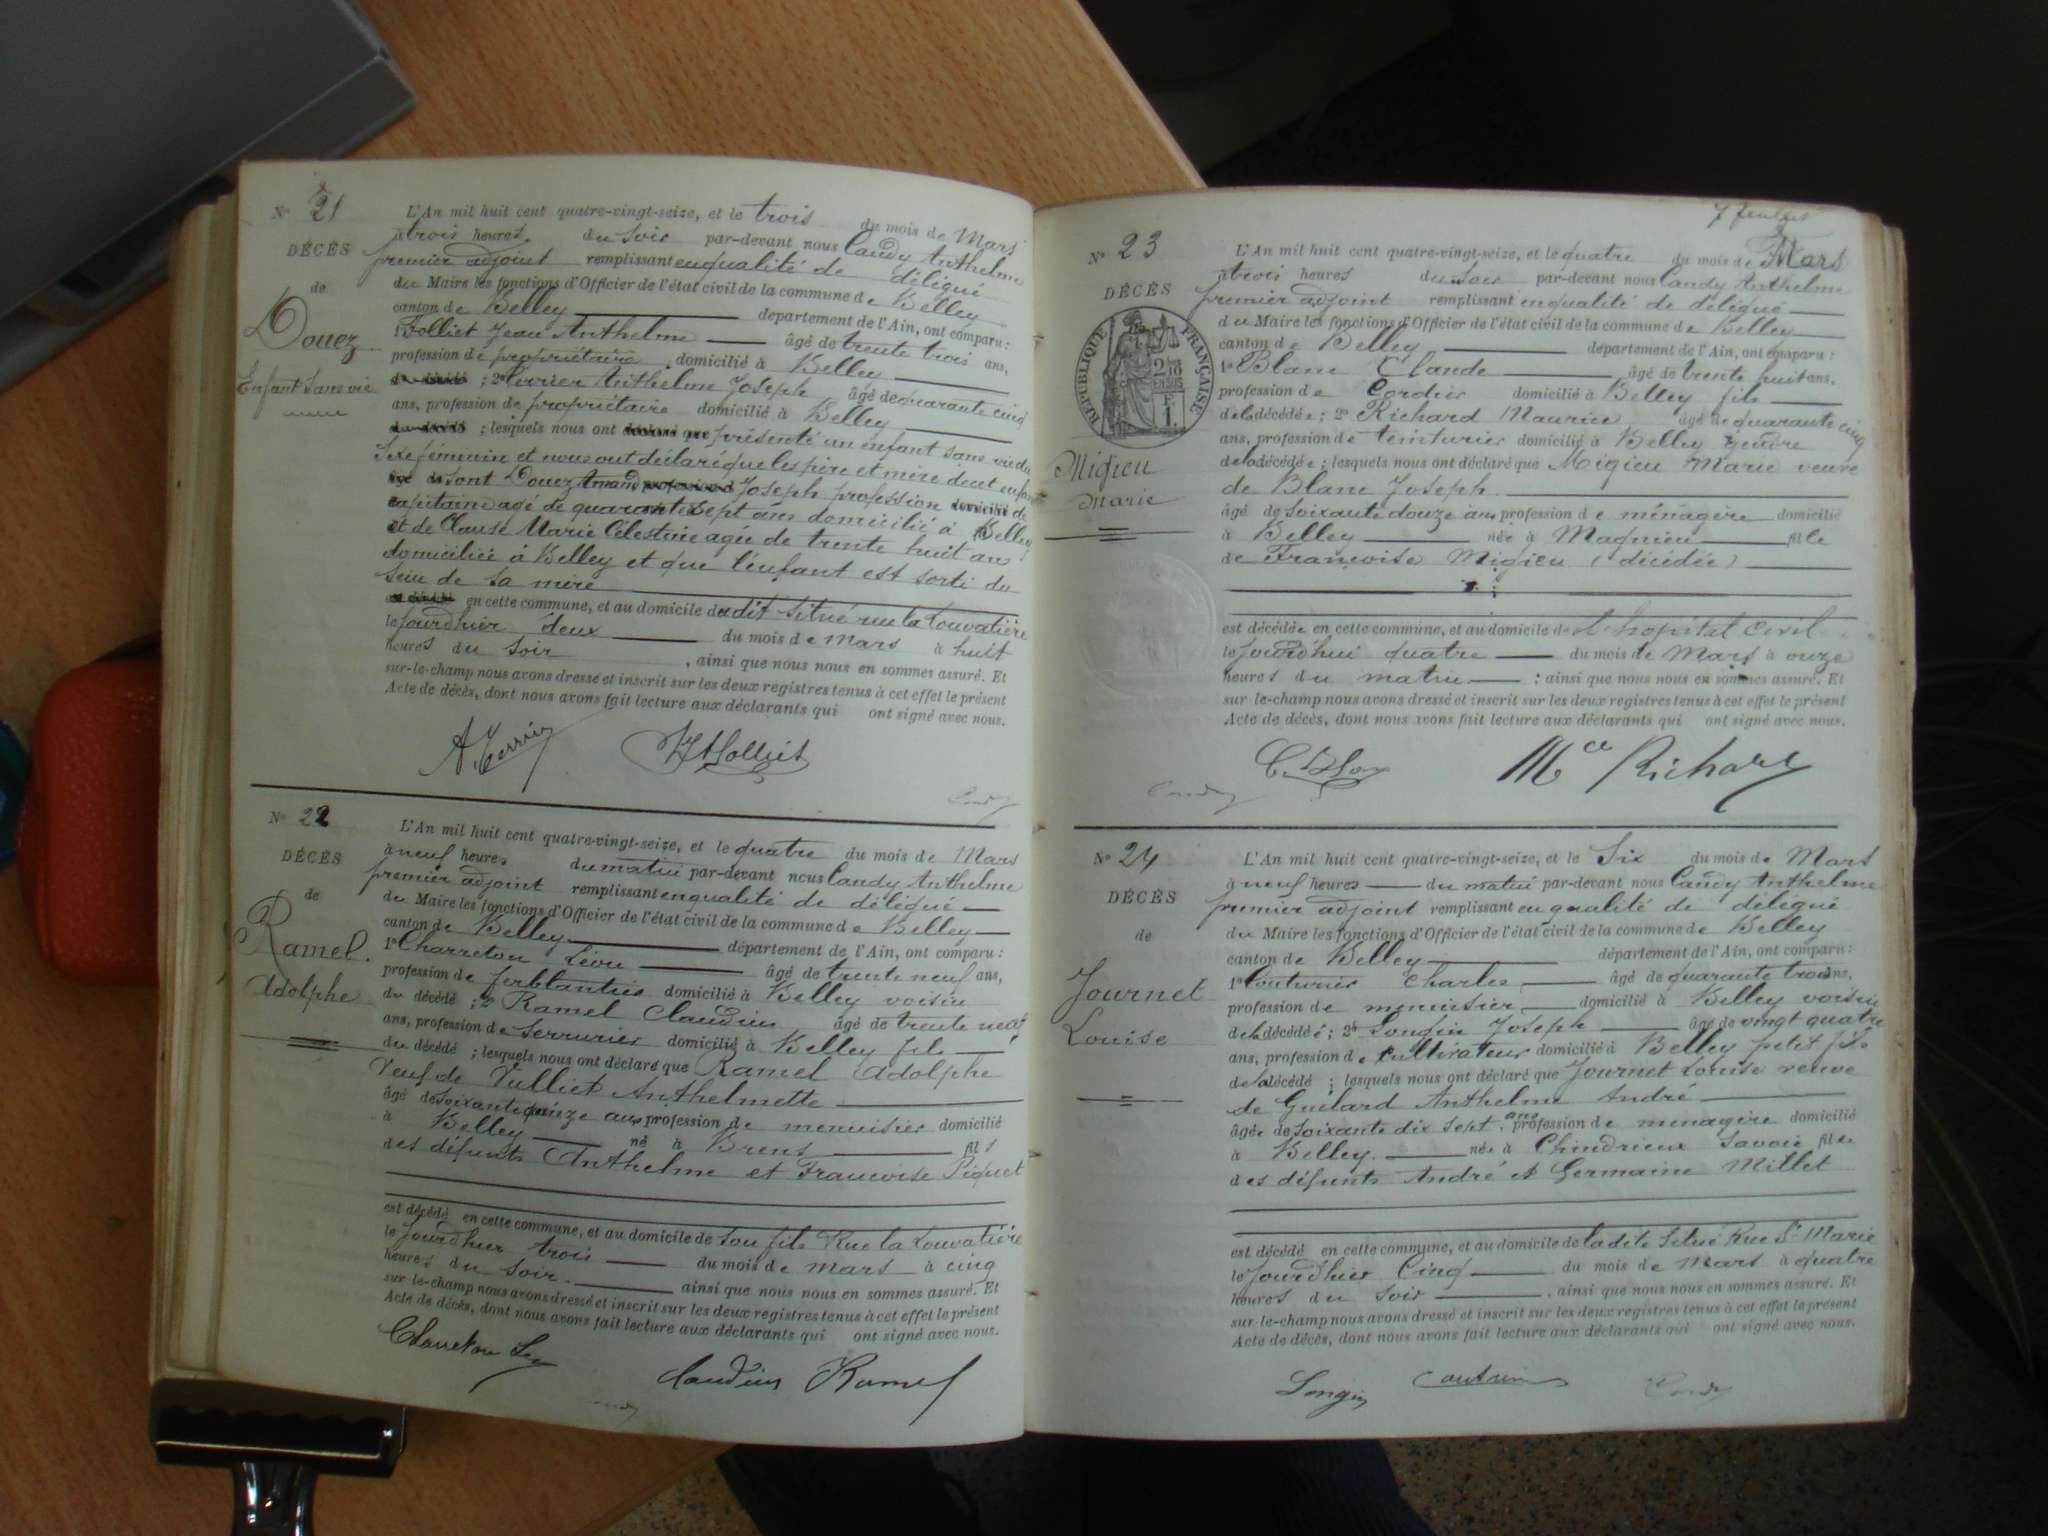 N° 21
DÉCÈS
de
Douez
Enfant sans vie
L'An mil huit cent quatre-vingt-seize, et le trois du mois de Mars
à trois heures du soir par-devant nous Candy Anthelme
premier adjoint remplissant en qualité de délégué
du Maire les fonctions d'Officier de l'état civil de la commune de Belley
canton de Belley département de l'Ain, ont comparu :
1° Folliet Jean Anthelme âgé de trente trois ans,
profession de propriétaire domicilié à Belley
; 2° Anthelme Joseph âgé de quarante cinq
ans, profession de propriétaire domicilié à Belley
; lesquels nous ont présenté un enfant sans vie du
sexe féminin et nous ont déclaré que les père et mère de cet enfant
sont Douez Joseph profession de
capitaine agé de quarante sept ans domicilié à Belley
et de Clause Marie Célestine agée de trente huit ans
domiciliée à Belley et que l'enfant est sorti du
sein de sa mère
en cette commune, et au domicile dudit situé rue la Louvatière
le jourdhier deux du mois de mars à huit
heures du soir, ainsi que nous nous en sommes assuré. Et
sur-le-champ nous avons dressé et inscrit sur les deux registres tenus à cet effet le présent
Acte de décès, dont nous avons fait lecture aux déclarants qui ont signé avec nous.
Candy
N° 22
DÉCÈS
de
Ramel
Adolphe
L'An mil huit cent quatre-vingt-seize, et le quatre du mois de Mars
à neuf heures du matin par-devant nous Candy Anthelme
premier adjoint remplissant en qualité de délégué
du Maire les fonctions d'Officier de l'état civil de la commune de Belley
canton de Belley département de l'Ain, ont comparu :
1° Charreton Léon âgé de trente neuf ans,
profession de ferblantier domicilié à Belley voisin
du décédé ; 2° Ramel Claudius âgé de trente neuf
ans, profession de serrurier domicilié à Belley fils
du décédé ; lesquels nous ont déclaré que Ramel Adolphe
Veuf de Vulliet Anthelmette
âgé de soixante quinze ans profession de menuisier domicilié
à Belley né à Brens fils
des défunts Anthelme et Francoise Piquet
est décédé en cette commune, et au domicile de son fils Rue la Louvatière
le jourdhier trois du mois de mars à cinq
heures du soir. ainsi que nous nous en sommes assuré. Et
sur-le-champ nous avons dressé et inscrit sur les deux registres tenus à cet effet le présent
Acte de décès, dont nous avons fait lecture aux déclarants qui ont signé avec nous.
Charreton
Claudius Ramel
N° 23
DÉCÈS
RÉPUBLIQUE FRANÇAISE
Migieu
Marie
L'An mil huit cent quatre-vingt-seize, et le quatre du mois de Mars
à trois heures du soir par-devant nous Candy Anthelme
premier adjoint remplissant en qualité de délégué
du Maire les fonctions d'Officier de l'état civil de la commune de Belley
canton de Belley département de l'Ain, ont comparu :
1° Blanc Claude âgé de trente huit ans,
profession de Cordier domicilié à Belley fils
de la décédée ; 2° Richard Maurice âgé de quarante cinq
ans, profession de teinturier domicilié à Belley gendre
de la décédée ; lesquels nous ont déclaré que Migieu Marie veuve
de Blanc Joseph
âgé de soixante douze ans profession de ménagère domicilié
à Belley née à Magnieu fille
de Françoise Migieu (décédée)
est décédée en cette commune, et au domicile de l'hopital civil
le jourd'hui quatre du mois de Mars à onze
heures du matin ; ainsi que nous nous en sommes assuré. Et
sur-le-champ nous avons dressé et inscrit sur les deux registres tenus à cet effet le présent
Acte de décès, dont nous avons fait lecture aux déclarants qui ont signé avec nous.
Mce Richard
Candy
N° 24
DÉCÈS
de
Journet
Louise
L'An mil huit cent quatre-vingt-seize, et le Six du mois de Mars
à neuf heures du matin par-devant nous Candy Anthelme
premier adjoint remplissant en qualité de délégué
du Maire les fonctions d'Officier de l'état civil de la commune de Belley
canton de Belley département de l'Ain, ont comparu :
1° Couturier Charles âgé de quarante trois ans,
profession de menuisier domicilié à Belley voisin
de la décédée ; 2° Longin Joseph âgé de vingt quatre
ans, profession de cultivateur domicilié à Belley petit fils
de la décédé ; lesquels nous ont déclaré que Journet Louise veuve
de Guilard Anthelme André
âgée de soixante dix sept ans profession de ménagère domicilié
à Belley. née à Chindrieux Savoie fille
des défunts André et Germaine Millet
est décédé en cette commune, et au domicile de ladite situé Rue St Marie
le jourdhier Cinq du mois de mars à quatre
heures du soir. ainsi que nous nous en sommes assuré. Et
sur-le-champ nous avons dressé et inscrit sur les deux registres tenus à cet effet le présent
Acte de décès, dont nous avons fait lecture aux déclarants qui ont signé avec nous.
Longin
Candy